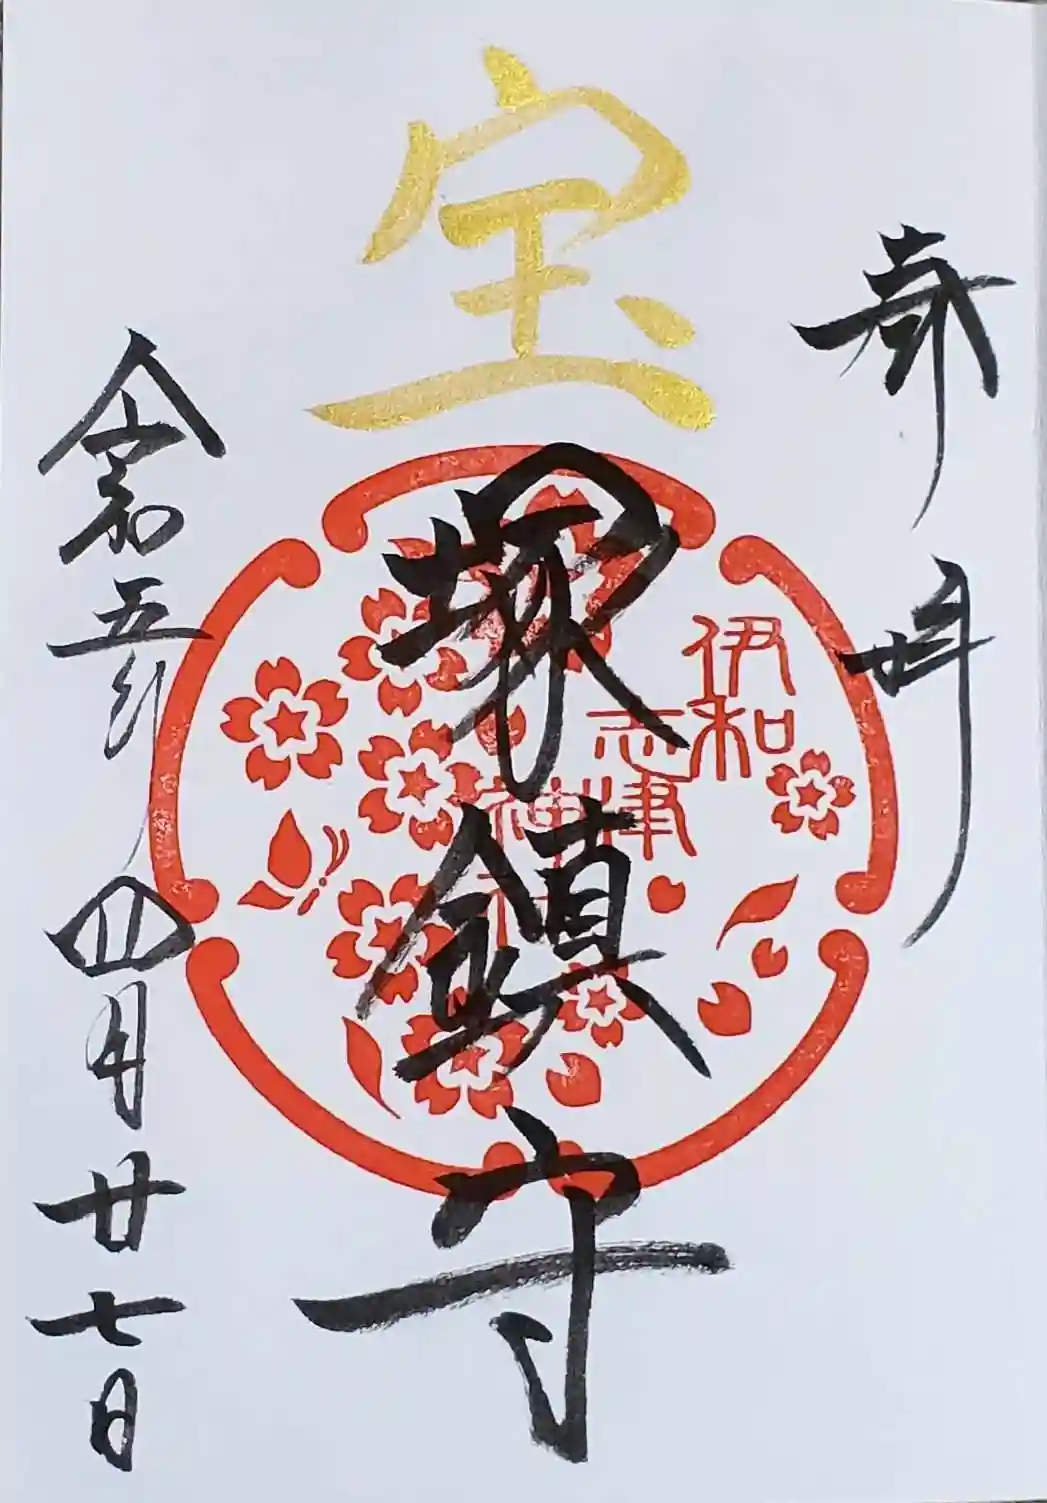 奉拝
宝塚鎮守
伊和
志津
神社
令和五年四月廿七日